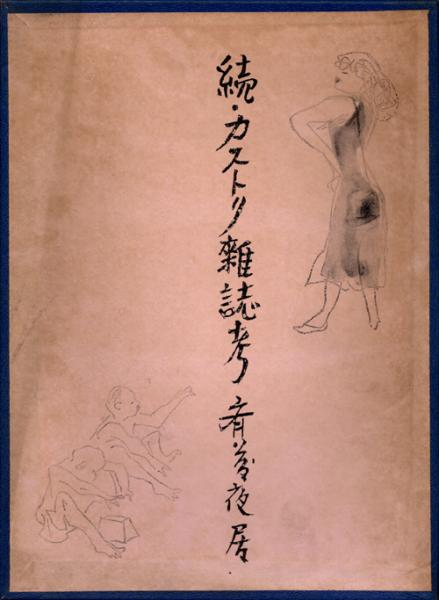 続・カストリ雑誌考 斉藤夜居